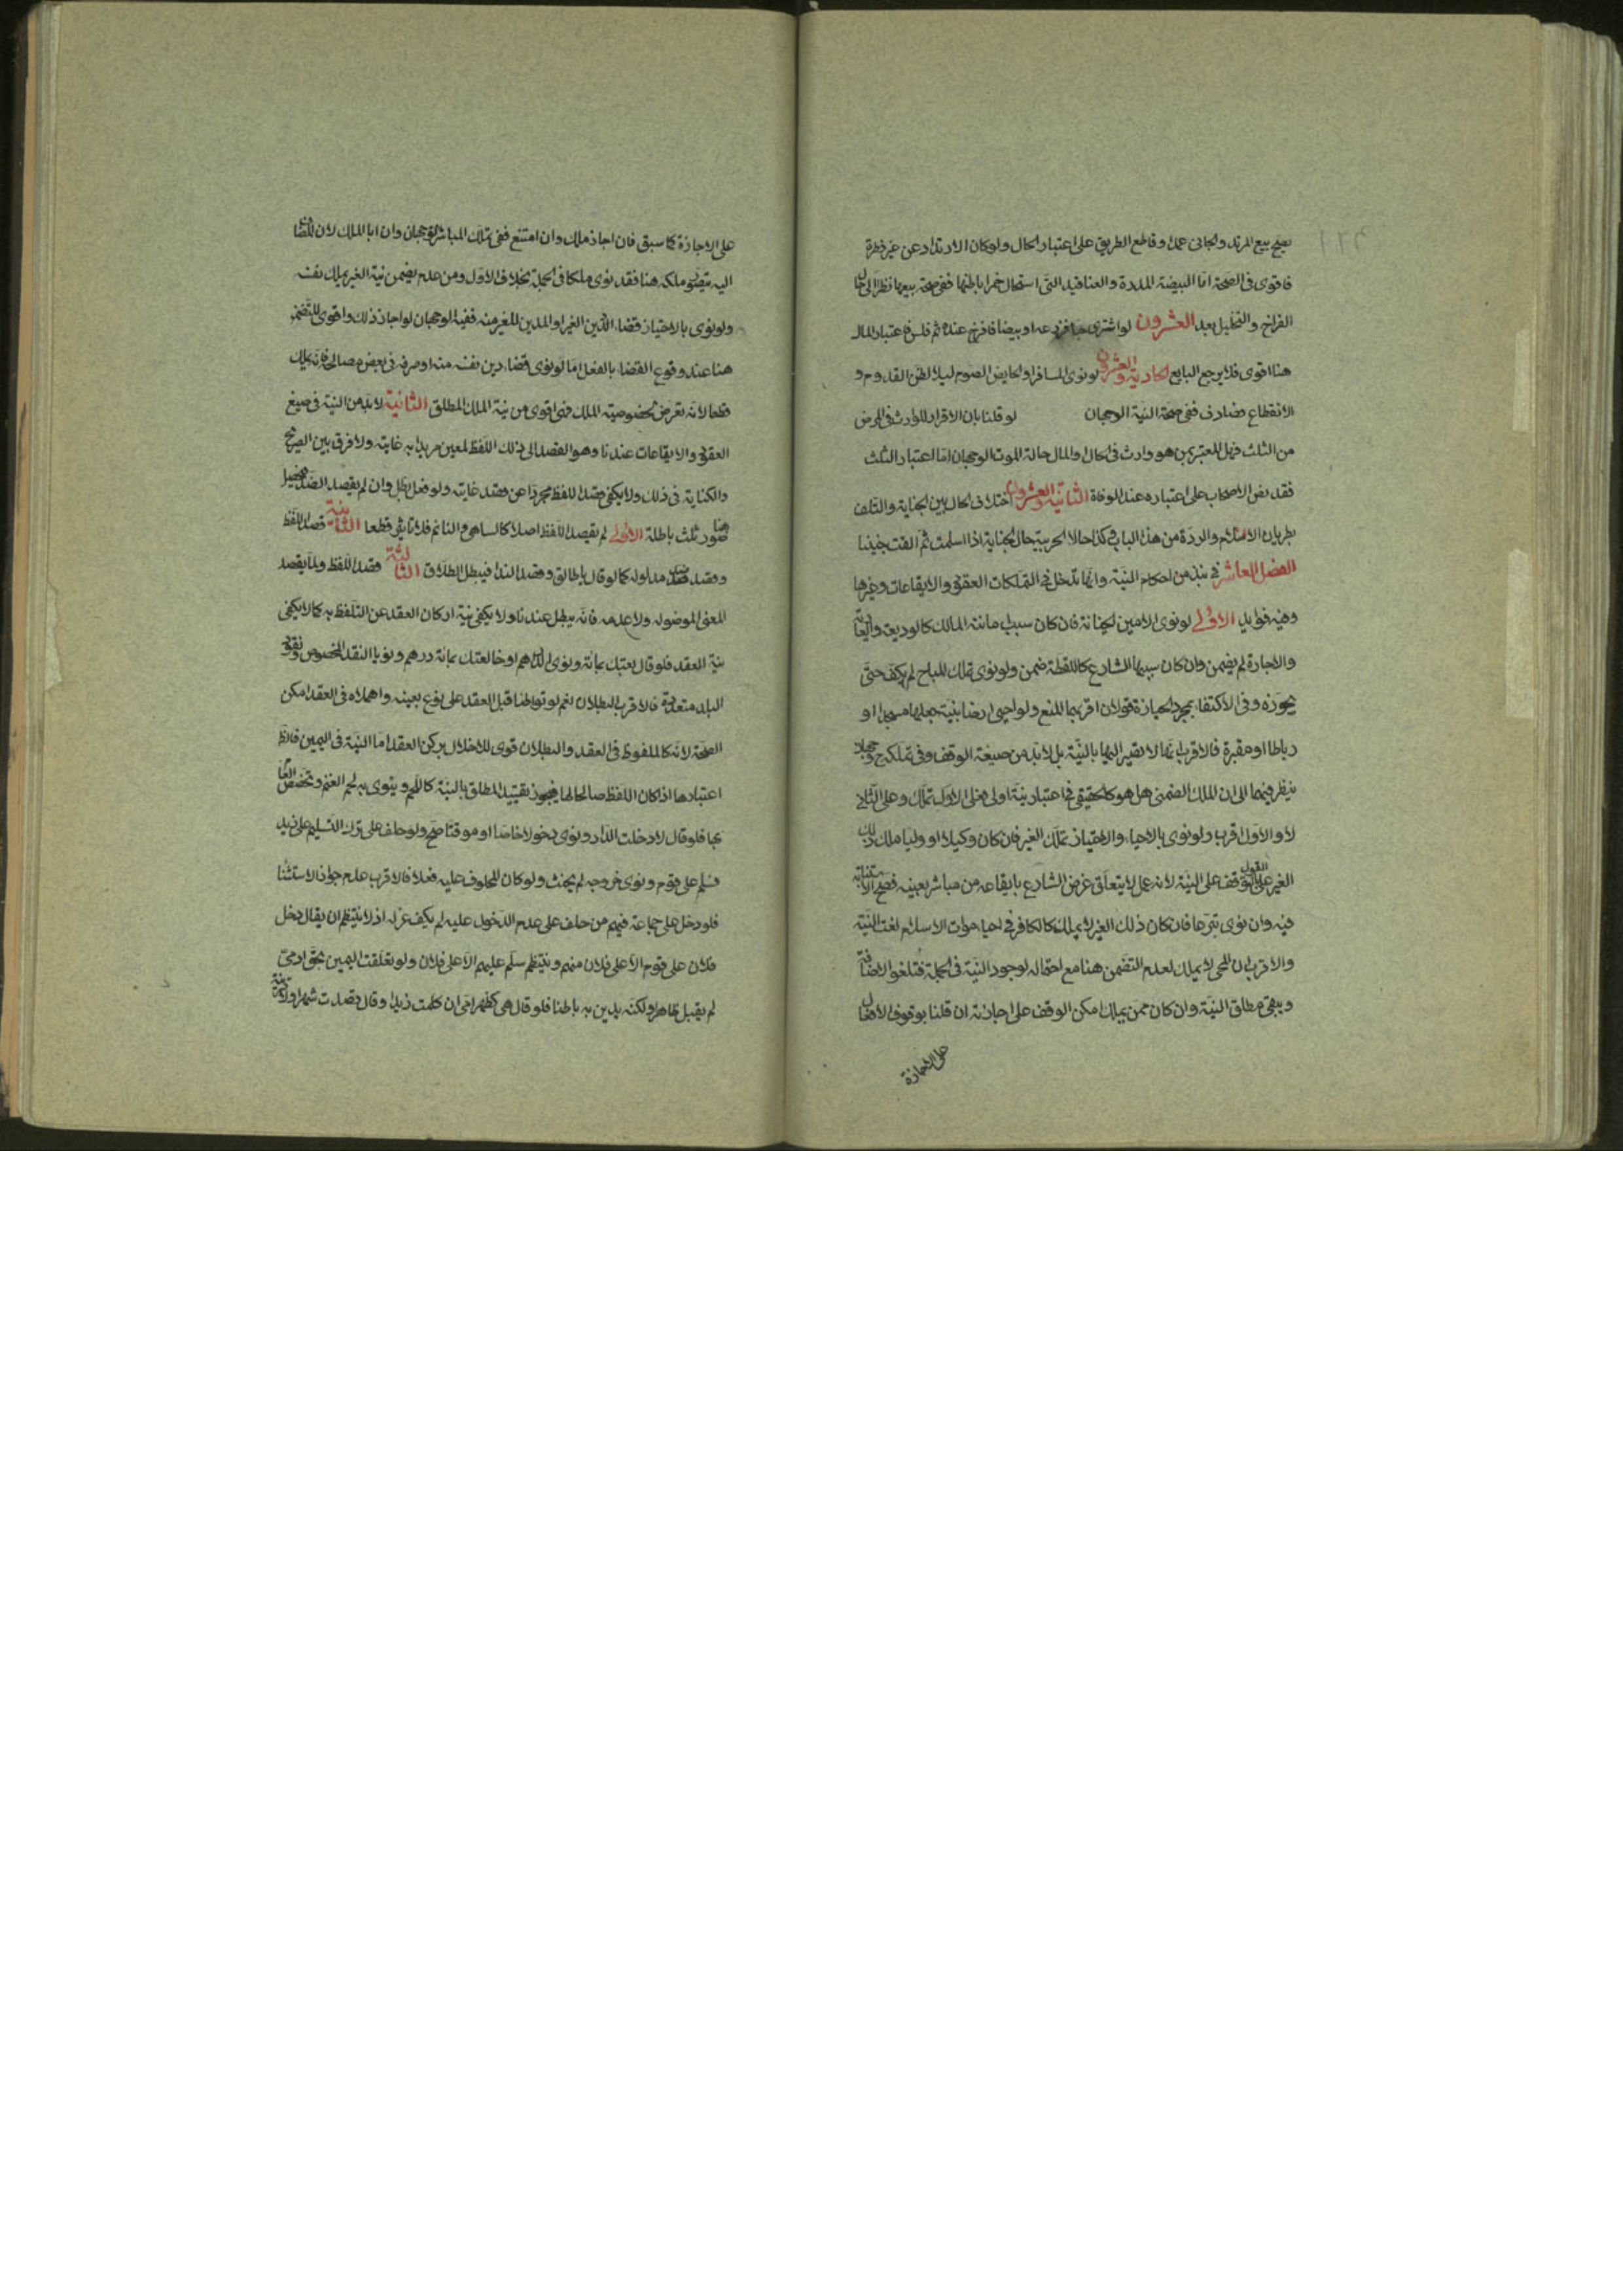 يصح بيع المرتد والجاني عمدا وقاطع الطريق على اعتبار الحال ولو كان الارتداد عن غير فطرة
فاقوى في الصحة اما البيضة المذرة والعناقيد التي استحال خمرا باطنها ففي صحة بيعها نظرا الى حال
الفراخ والتخليل بعد العشرون لو اشترى حبا فزرعه او بيضا فافرخ عنده ثم فلس فاعتبار المال
هنا اقوى فلا يرجع البايع الحادية والعشرون لو نوى المسافر او الحايض الصوم ليلا لظن القدوم و
الانقطاع فصادف ففي صحة النية الوجهان لو قلنا بان الاقرار للوارث في المرض
من الثلث فهل المعتبر بمن هو وارث في الحال او المال حالة الموت الوجهان اما اعتبار الثلث
فقد نص الاصحاب على اعتباره عند الوفاة الثانية والعشرون اختلاف الحال بين الجناية والتلف
بطريان الاسلام والردة من هذا الباب وكذا حالا الحربية حال الجناية اذا اسلمت ثم القت جنينا
الفصل العاشر في نبذ من احكام النية وانها تدخل في التملكات العقود والايقاعات وغيرها
وفيه فوايد الاولى لو نوى الامين الخيانة فان كان سبب امانته المالك كالوديعة والعارية
والاجارة لم يضمن وان كان سببها الشارع كاللقطة ضمن ولو نوى تملك المباح لم يكف حتى
يحوزه وفي الاكتفاء بمجرد الحيازة قولان اقربهما المنع ولو احيى ارضا بنية جعلها مسجدا او
رباطا او مقبرة فالاقرب انها لا تصير اليها بالنية بل لا بد من صيغة الوقف وفي تملكه ح وجهان
ينظر فيهما الى ان الملك الضمني هل هو كالحقيقي في اعتبار نية او لا فعلى الاول تملك وعلى الثاني
لا والاول اقرب ولو نوى بالاحياء والاحتياز تملك الغير فان كان وكيلا او وليا ملك ذلك
الغير على القول بتوقف على النية لانه عمل لا يتعلق غرض الشارع بايقاعه من مباشر بعينه فصح الاستنابة
فيه وان نوى تبرعا فان كان ذلك الغير لا يملك كالكافر في احياء موات الاسلام لغت النية
والاقرب ان المحي لا يملك لعدم التضمن هنا مع احتماله لوجود النية في الجملة فتلغو الاضافة
ويبقى مطلق النية وان كان ممن يملك امكن الوقف على اجازته ان قلنا بوقوف الافعال
على الاجازة
على الاجازة كما سبق فان اجاز ملك وان امتنع ففي تملك المباشر الوجهان وان ابا الملك لان المضاف
اليه يتصور ملكه هنا فقد نوى ملكا في الجملة بخلاف الاول ومن عدم تضمن نية الغير تملك نفسه
ولو نوى بالاحتياز قضاء الدين الغير او المدين للغير منه ففيه الوجهان لو اجاز ذلك واقوى للتضمن
هنا عند وقوع القضاء بالفعل اما لو نوى قضاء دين نفسه منه او صرفه في بعض مصالحه فانه يملك
قطعا لانه تعرض لخصوصية الملك فهي اقوى من نية الملك المطلق الثانية لا بد من النية في صيغ
العقود والايقاعات عندنا وهو القصد الى ذلك اللفظ المعين مريدا به غايته ولا فرق بين الصريح
والكناية في ذلك ولا يكفي قصد اللفظ مجردا عن قصد غايته ولو فعل بطل وان لم يقصد الضد فيحصل
هنا صور ثلث باطلة الاولى لم يقصد اللفظ اصلا كالساهي والنائم فلا تاثير قطعا الثانية قصد اللفظ
وقصد ضد مدلوله كما لو قال يا طالق وقصد النداء فيبطل الطلاق الثالثة قصد اللفظ ولما يقصد
المعنى الموضوله ولا عدمه فانه يبطل عندنا ولا يكفي نية اركان العقد عن التلفظ به كما لا يكفي
نية العقد فلو قال بعتك بمائة ونوى الدراهم او خالعتك بمائة درهم ونويا النقد المخصوص ونقود
البلد متعددة فالاقرب البطلان نعم لو تواطئا قبل العقد على نوع بعينه واهملاه في العقد امكن
الصحة لانه كالملفوظ في العقد والبطلان قوى للاخلال بركن العقد اما النية في اليمين فالاظهر
اعتبارها اذا كان اللفظ صالحا لها فيجوز تقييد المطلق بالنية كاللحم وينوى به لحم الغنم وتخصيص العام
بها فلو قال لا دخلت الدار ونوى دخولا خاصا او موقتا صح ولو حلف على ترك التسليم على زيد
فسلم على قوم ونوى خروجه لم يحنث ولو كان المحلوف عليه فعلا فالاقرب عدم جواز الاستثناء
فلو دخل على جماعة فيهم من حلف على عدم الدخول عليه لم يكف عزله اذ لا ينتظم ان يقال دخل
فلان على قوم الا على فلان منهم وينتظم سلم عليهم الا على فلان ولو تعلقت اليمين بحق ادمي
لم يقبل ظاهرا ولكنه يدين به باطنا فلو قال هي كظهر امي ان كلمت زيدا وقال قصدت شهرا